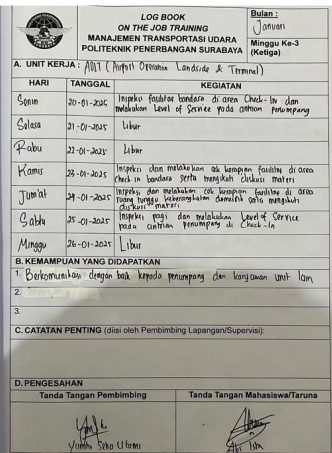 LOG BOOK
ON THE JOB TRAINING
MANAJEMEN TRANSPORTASI UDARA
POLITEKNIK PENERBANGAN SURABAYA
Bulan :
Januari
Minggu Ke-3
(Ketiga)
A. UNIT KERJA : AOLT (Airport Operation Landside & Terminal)
HARI TANGGAL KEGIATAN
Senin 20-01-2025 Inspeksi fasilitas bandara di area Check-In dan
melakukan Level of Service pada antrian penumpang
Selasa 21-01-2025 Libur
Rabu 22-01-2025 Libur
Kamis 23-01-2025 Inspeksi dan melakukan cek kerapian fasilitas di area
check in bandara serta mengikuti diskusi materi
Jum'at 24-01-2025 Inspeksi dan melakukan cek kerapian fasilitas di area
ruang tunggu keberangkatan domestik serta mengikuti
diskusi materi
Sabtu 25-01-2025 Inspeksi pagi dan melakukan Level of Service
pada antrian penumpang di Check-In
Minggu 26-01-2025 Libur
B. KEMAMPUAN YANG DIDAPATKAN
1. Berkomunikasi dengan baik kepada penumpang dan karyawan unit lain
2.
3.
C. CATATAN PENTING (diisi oleh Pembimbing Lapangan/Supervisi):
D. PENGESAHAN
Tanda Tangan Pembimbing Tanda Tangan Mahasiswa/Taruna
Utami